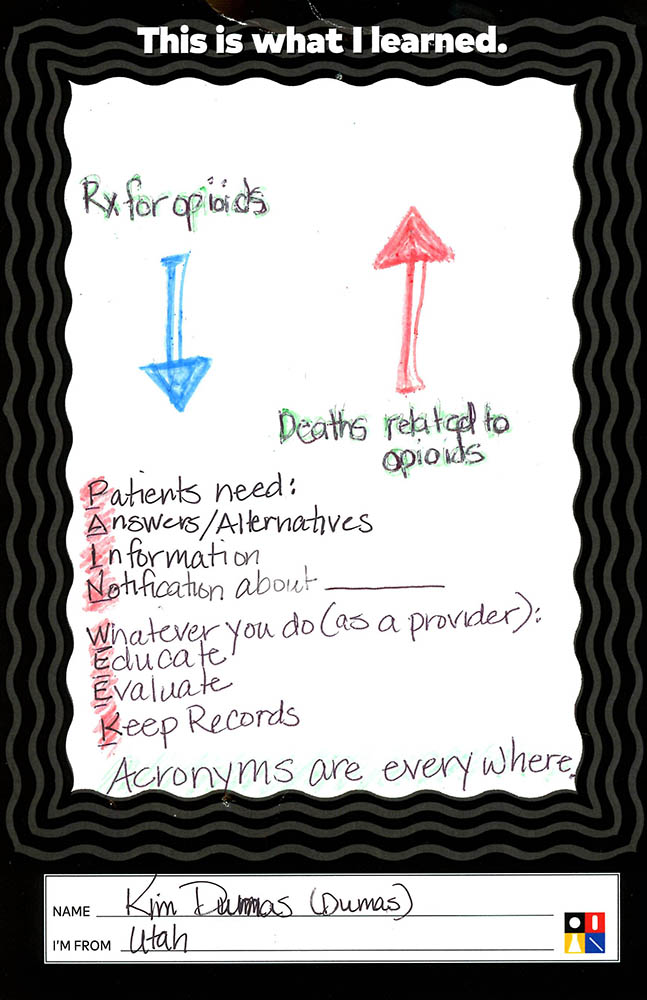 This is what I learned.
Rx for opioids
Deaths related to
opioids
Patients need:
Answers/Alternatives
Information
Notification about ________
Whatever you do (as a provider):
Educate
Evaluate
Keep Records
Acronyms are everywhere.
NAME Kim Dumas (Dumas)
I'M FROM Utah